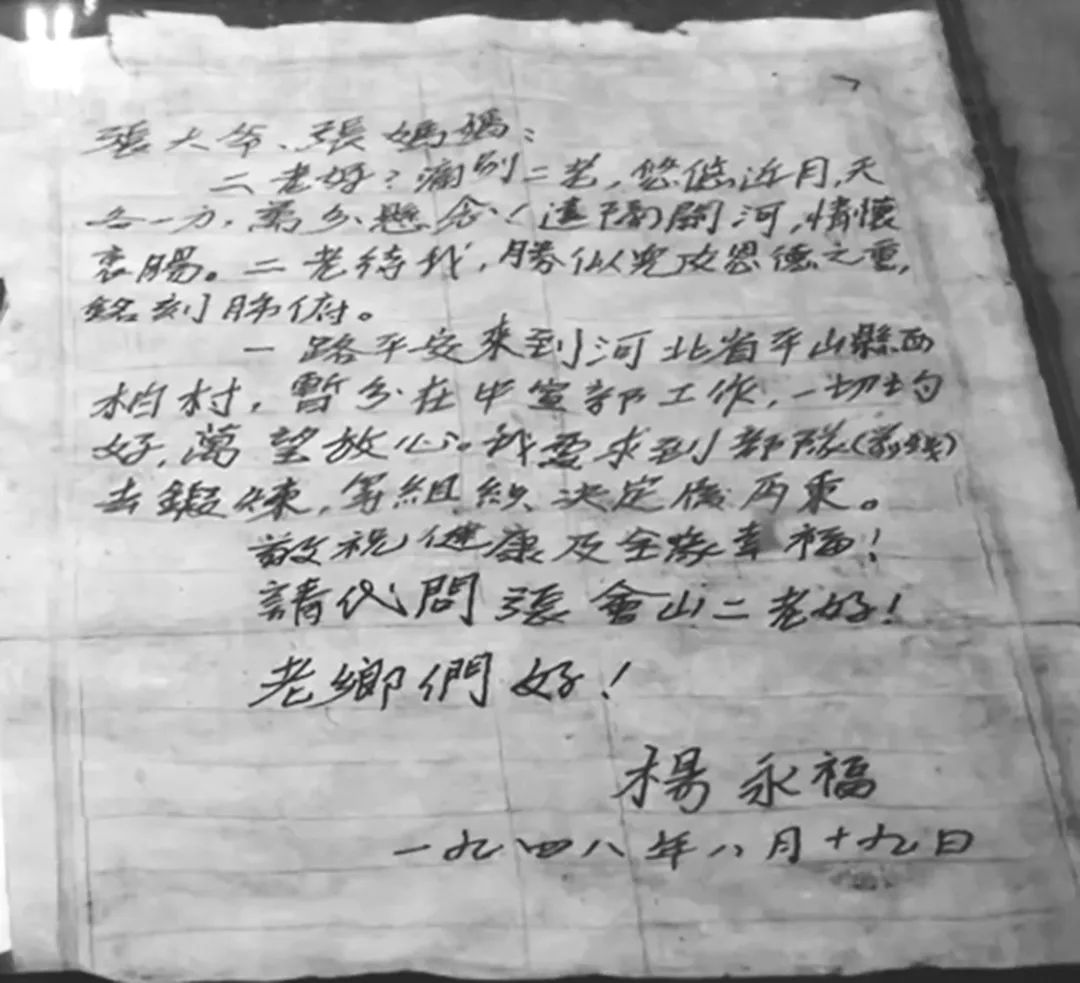 張大爷、張媽媽：
二老好？痛别二老，悠悠近月，天
各一方，萬分懸念！遠隔關河，情懷
衷腸。二老待我，勝似兒女恩德之重，
銘刻肺俯。
一路平安來到河北省平山縣西
柏村，暫分在中宣部工作，一切均
好，萬望放心。我要求到部隊（前綫）
去鍛煉，等組織决定後再禀。
敬祝健康及全家幸福！
請代問張會山二老好！
老鄉們好！
楊永福
一九四八年八月十九日